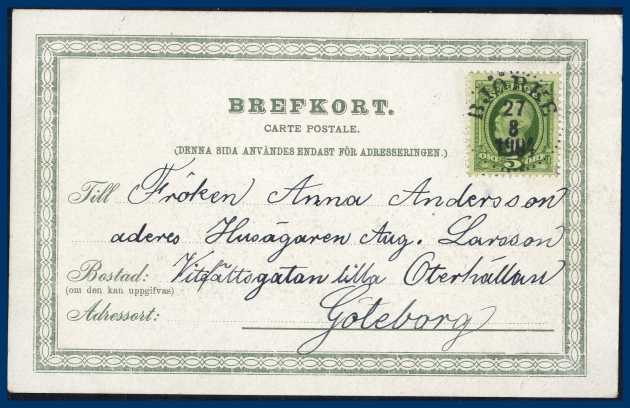 BREFKORT.
CARTE POSTALE.
(DENNA SIDA ANVÄNDES ENDAST FÖR ADRESSERINGEN.)
BJÄRKE
27
8
1904
5
Till Fröken Anna Andersson
aderes Husägaren Aug. Larsson
Bostad: Vitfältsgatan lilla Oterhällan
(om den kan uppgifvas)
Adressort: Göteborg